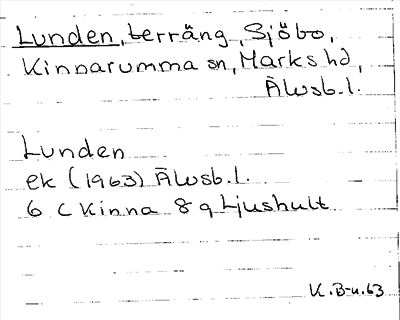 Lunden, terräng, Sjöbo,
Kinnarumma sn, Marks hd,
Älvsb. l.
Lunden
ek (1963) Älvsb. l.
6 C Kinna 8 g Ljushult
K. B-n. 63